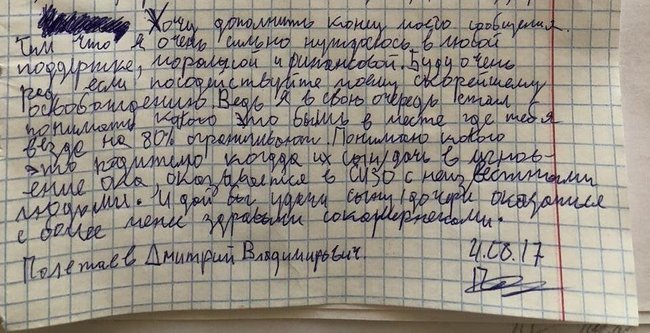 Хочу дополнить конец моего сообщения.
Тем что я очень сильно нуждаюсь в любой
поддержке, моральной и финансовой. Буду очень
рад если посодействуйте моему скорейшему
освобождению. Ведь я в свою очередь стал
понимать какого это быть в месте где тебя
везде на 80% ограничивают. Понимаю какого
это родителю когда их сын/дочь в мгнов-
ение ока оказывается в СИЗО с неизвестными
людьми. И дай бог удачи сыну/дочери оказаться
с более менее здравыми сокамерниками.
Полетаев Дмитрий Владимирович.
4.08.17